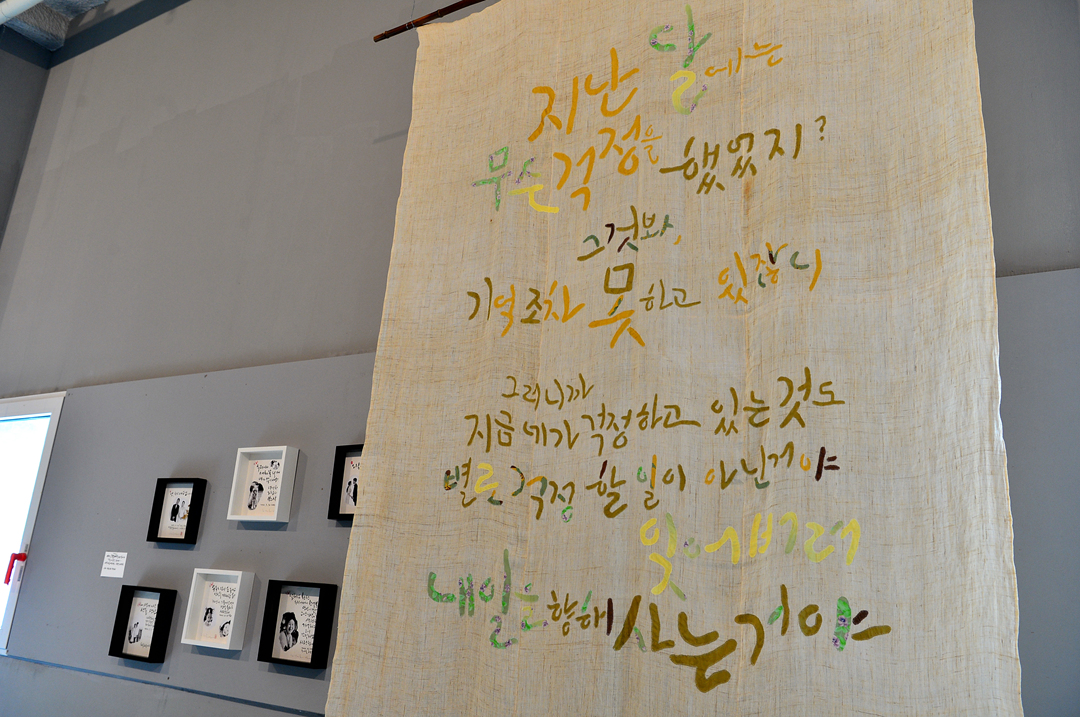 지난 달에는
무슨 걱정을 했었지?
그것봐,
기억조차 못하고 있잖니
그러니까
지금 네가 걱정하고 있는것도
별로 걱정 할 일이 아닌거야
잊어버려
내일을 향해 사는거야